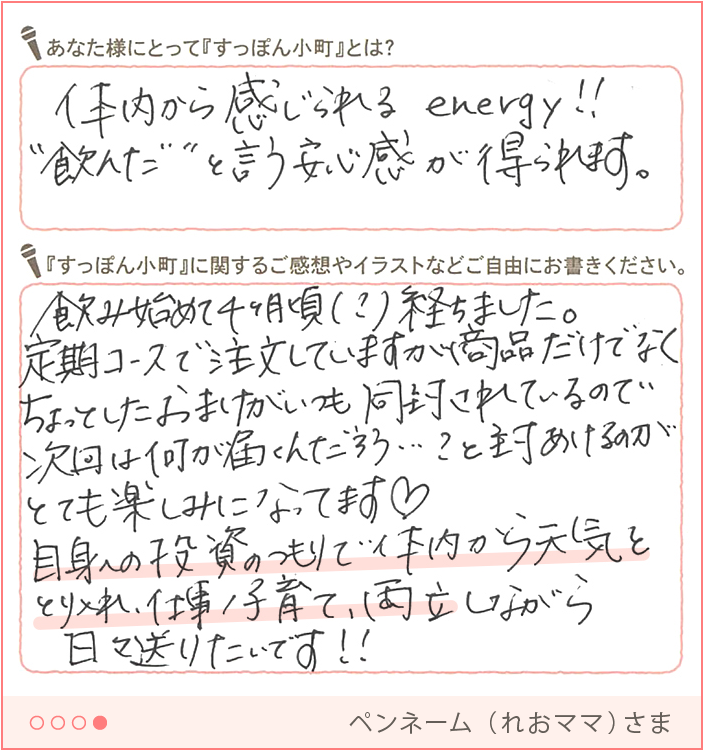 あなた様にとって『すっぽん小町』とは?
体内から感じられる energy!!
"飲んだ"と言う安心感が得られます。
『すっぽん小町』に関するご感想やイラストなどご自由にお書きください。
飲み始めて4ヶ月頃(?)経ちました。
定期コースで注文していますが、商品だけでなく
ちょっとしたおまけがいつも同封されているので
次回は何が届くんだろう…?と封あけるのが
とても楽しみになってます♡
自身への投資のつもりで体内から元気を
とり入れ、仕事/子育て、両立しながら
日々送りたいです!!
○○○● ペンネーム(れおママ)さま